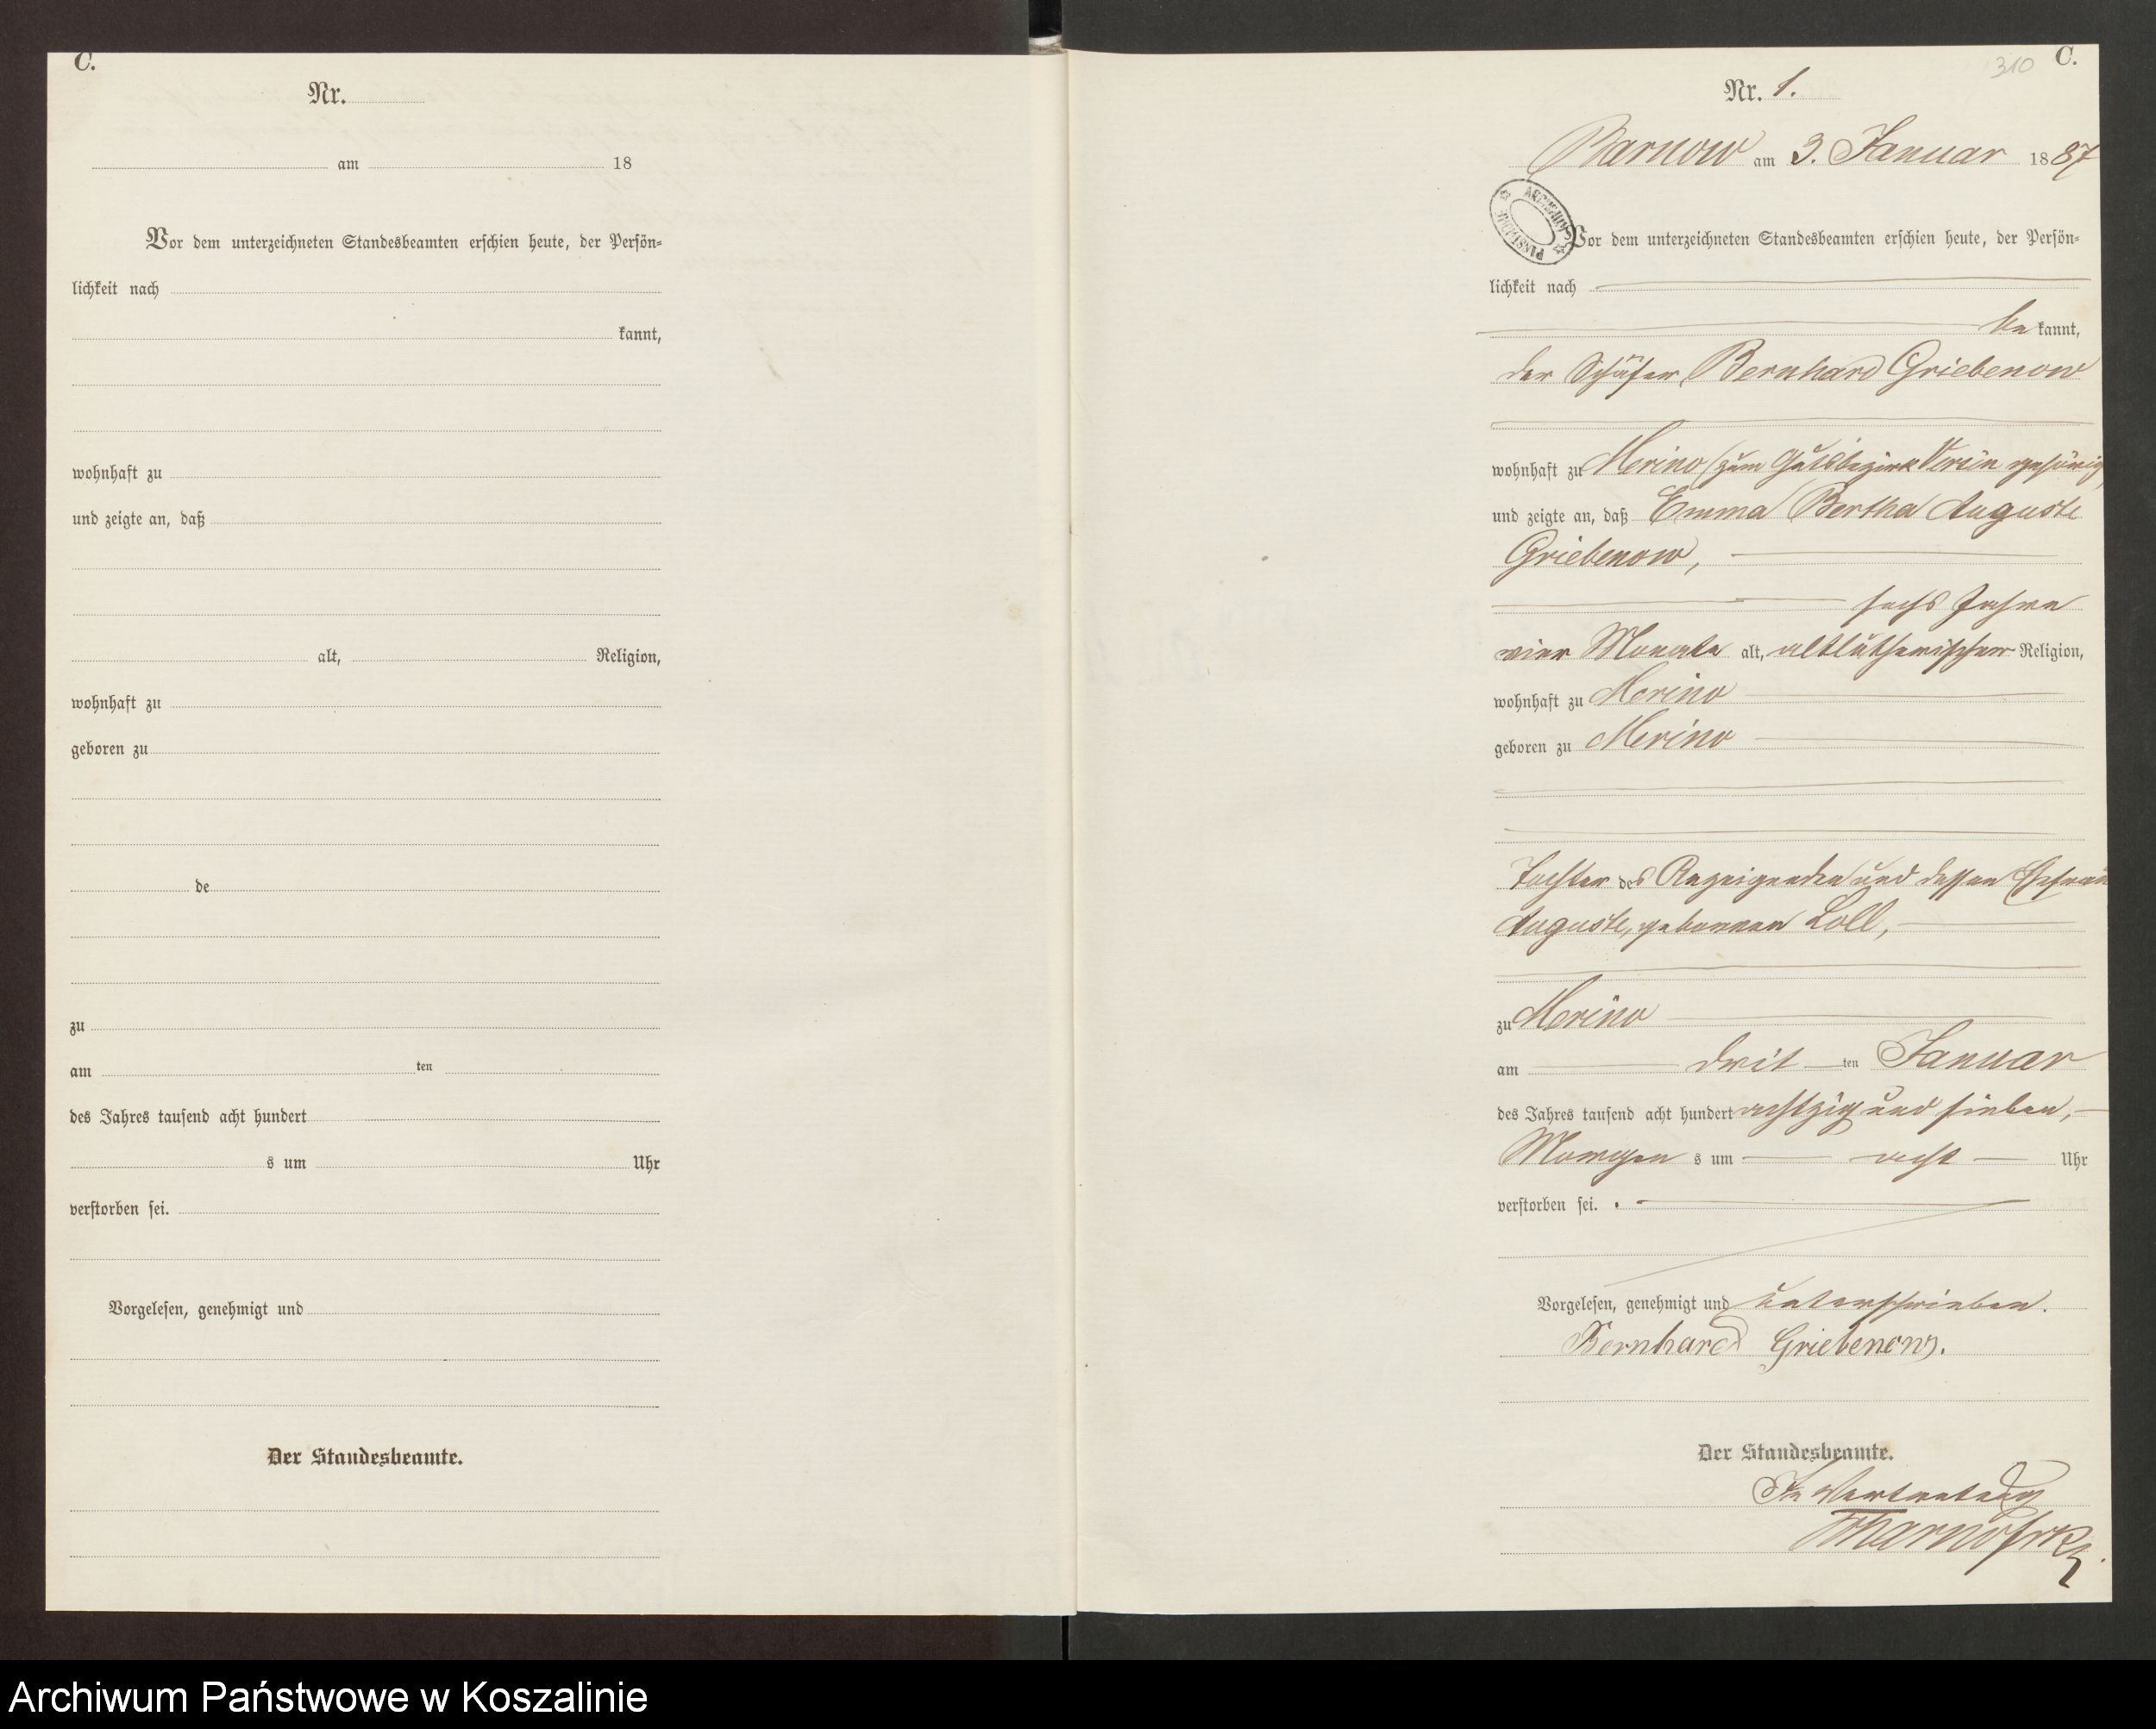 C.
Nr.
am 18
Vor dem unterzeichneten Standesbeamten erschien heute, der Persön=
lichkeit nach
kannt,
wohnhaft zu
und zeigte an, daß
alt, Religion,
wohnhaft zu
geboren zu
de
zu
am ten
des Jahres tausend acht hundert
s um Uhr
verstorben sei.
Vorgelesen, genehmigt und
Der Standesbeamte.
310 C.
Nr. 1.
Barnow am 3. Januar 1887
Vor dem unterzeichneten Standesbeamten erschien heute, der Persön=
lichkeit nach
be kannt,
der Schäfer Bernhard Griebenow
wohnhaft zu Merino (zum Gutsbezirk Versin gehörig)
und zeigte an, daß Emma Bertha Auguste
Griebenow,
sechs Jahre
vier Monate alt, altlutherischer Religion,
wohnhaft zu Merino
geboren zu Merino
Tochter des Anzeigenden und dessen Ehefrau
Auguste, geborenen Loll,
zu Merino
am drit ten Januar
des Jahres tausend acht hundert achtzig und sieben,
Morgen s um acht Uhr
verstorben sei.
Vorgelesen, genehmigt und unterschrieben.
Bernhard Griebenow.
Der Standesbeamte.
In Vertretung
Archiwum Państwowe w Koszalinie